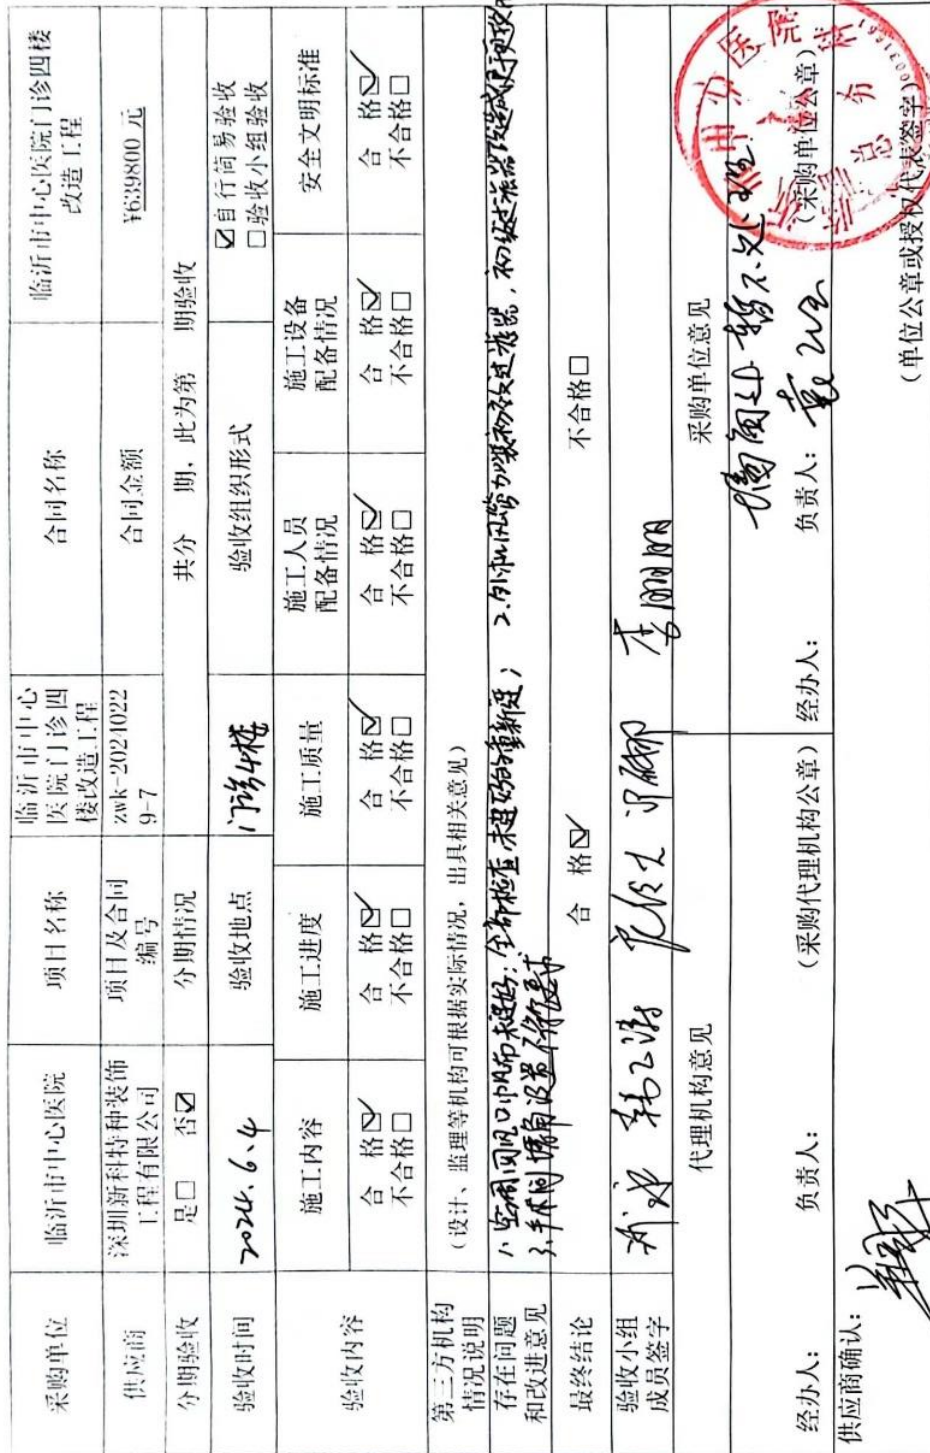 采购单位 临沂市中心医院 项目名称 临沂市中心医院门诊四楼改造工程 合同名称 临沂市中心医院门诊四楼改造工程
供应商 深圳新科特种装饰工程有限公司 项目及合同编号 zwk-20240229-7 合同金额 ¥639800 元
分期验收 是□ 否☑ 分期情况 共分 期，此为第 期验收
验收时间 2024.6.4 验收地点 门诊4楼 验收组织形式 ☑自行简易验收
□验收小组验收
验收内容 施工内容 施工进度 施工质量 施工人员配备情况 施工设备配备情况 安全文明标准
合 格☑ 合 格☑ 合 格☑ 合 格☑ 合 格☑ 合 格☑
不合格□ 不合格□ 不合格□ 不合格□ 不合格□ 不合格□
第三方机构情况说明 （设计、监理等机构可根据实际情况，出具相关意见）
存在问题和改进意见 1.空调回风口帆布未进好：全部检查，未进好的重新进； 2.外机风管加装初效过滤器，初效过滤器改造成便于更换
3.手术间墙角设置符合要求
最终结论 合 格☑ 不合格□
验收小组成员签字
代理机构意见 采购单位意见
经办人： 负责人： （采购代理机构公章） 经办人： 负责人： （采购单位公章）
供应商确认： （单位公章或授权代表签字）